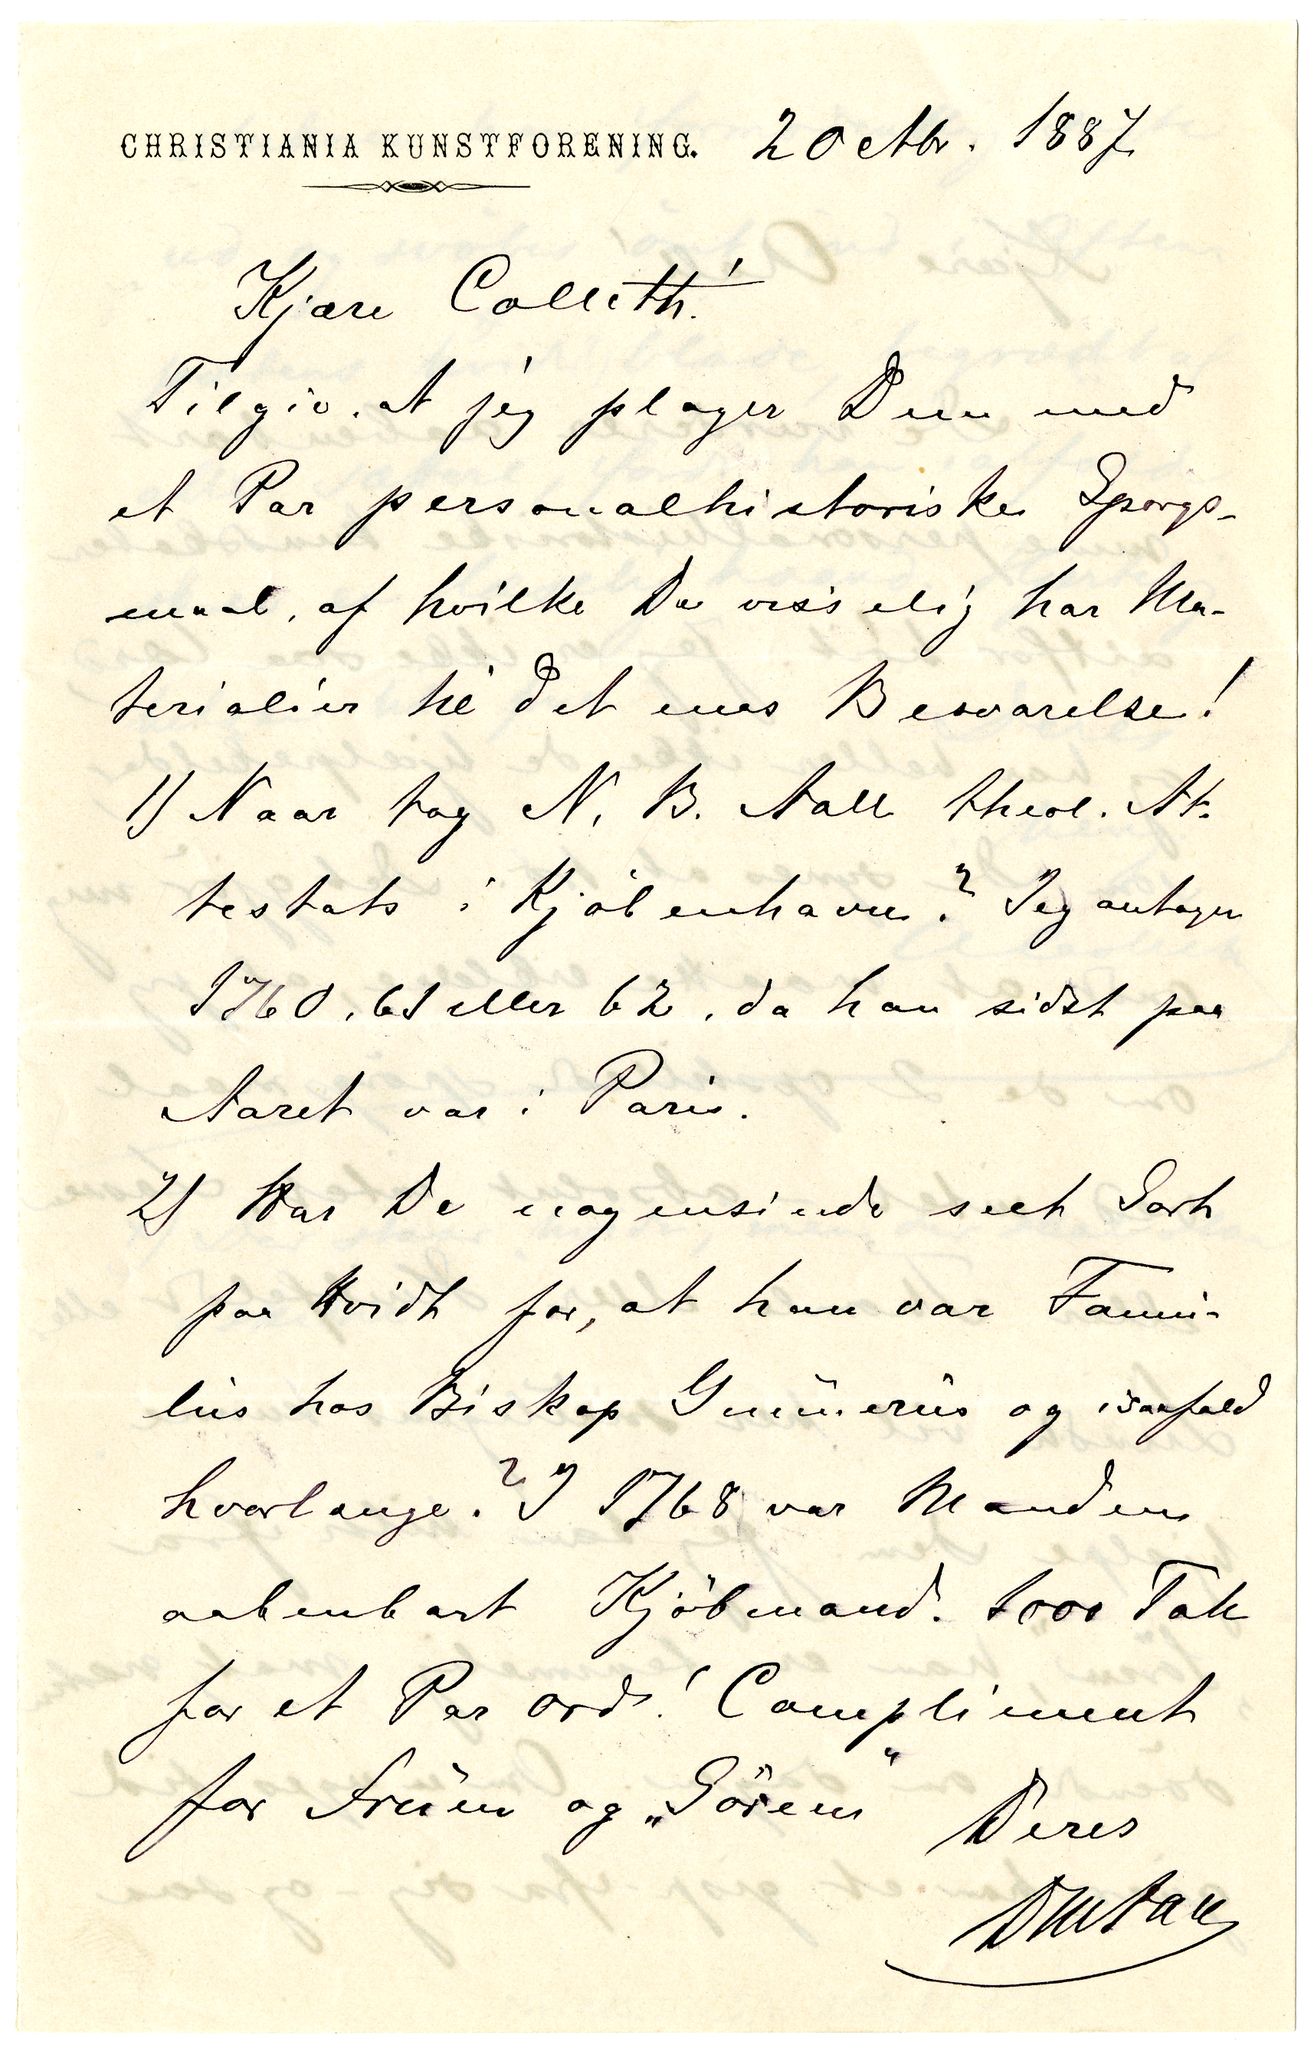 CHRISTIANIA KUNSTFORENING. 2 Octbr. 1887
Kjære Collett!
Tilgiv, at jeg plager Dem med
et Par personalhistoriske Spørgs-
maal, af hvilke De visselig har Ma-
terialier til det enes Besvarelse!
1) Naar tog N. B. Aall theol. At-
testats i Kjøbenhavn? Jeg antager
1760, 61 eller 62, da han sidst paa
Aaret var i Paris.
2) Har De nogensinde seet Sort
paa Hvidt for, at han var Famu-
lus hos Biskop Gunnerus og isaafald
hvorlænge? I 1768 var Manden
aabenbart Kjøbmand. 1000 Tak
for et Par Ord! Compliment
for Fruen og „Sören“ Deres